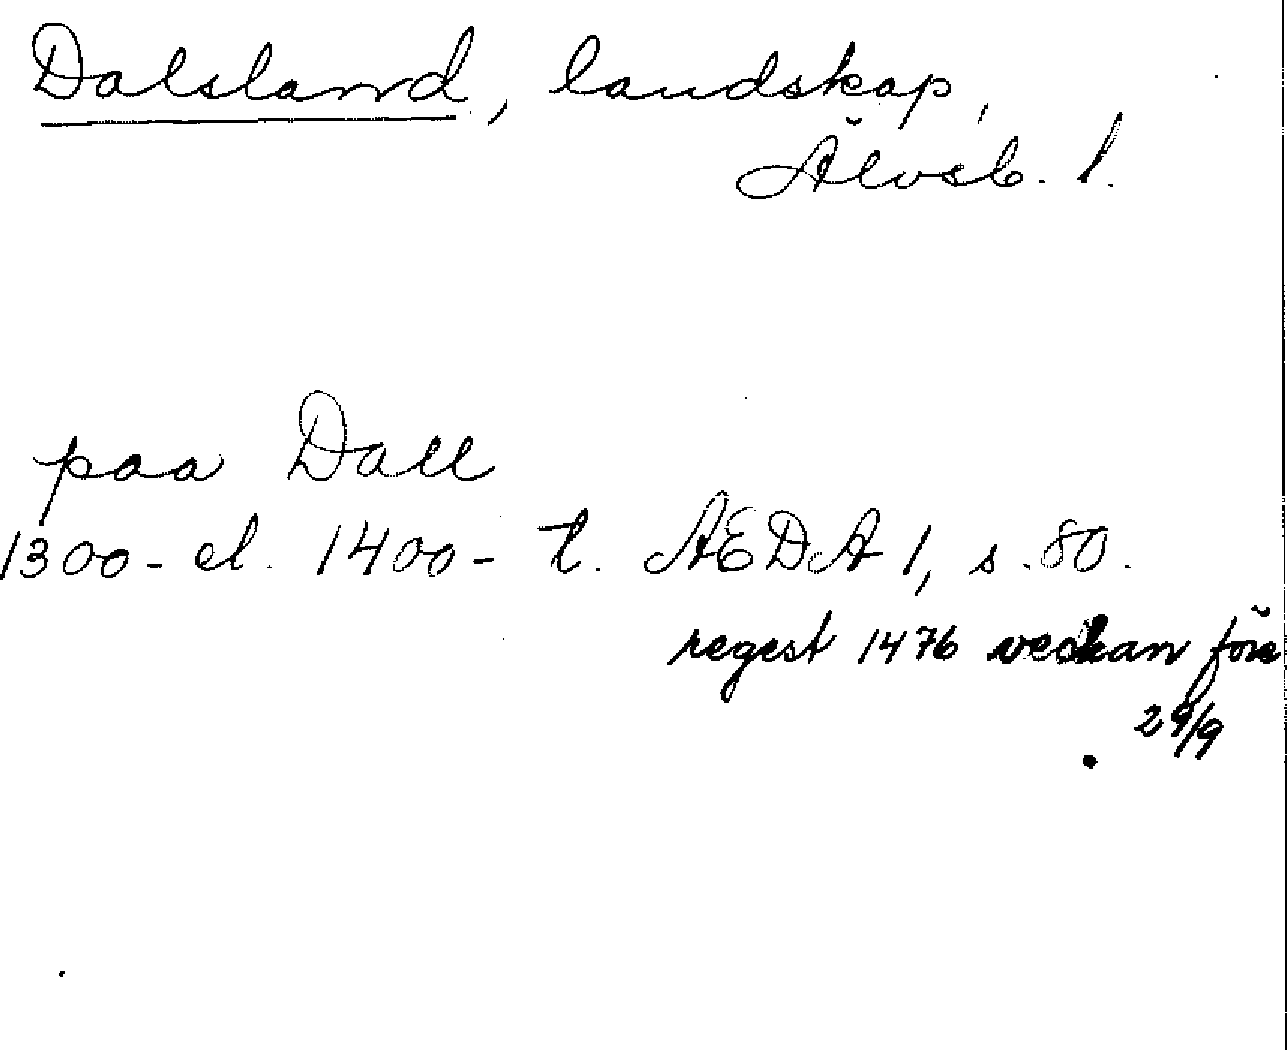 Dalsland, landskap,
Älvsb. l.
paa Dall
1300- el. 1400- t. AEDA 1, s. 80.
regest 1476 veckan före
29/9